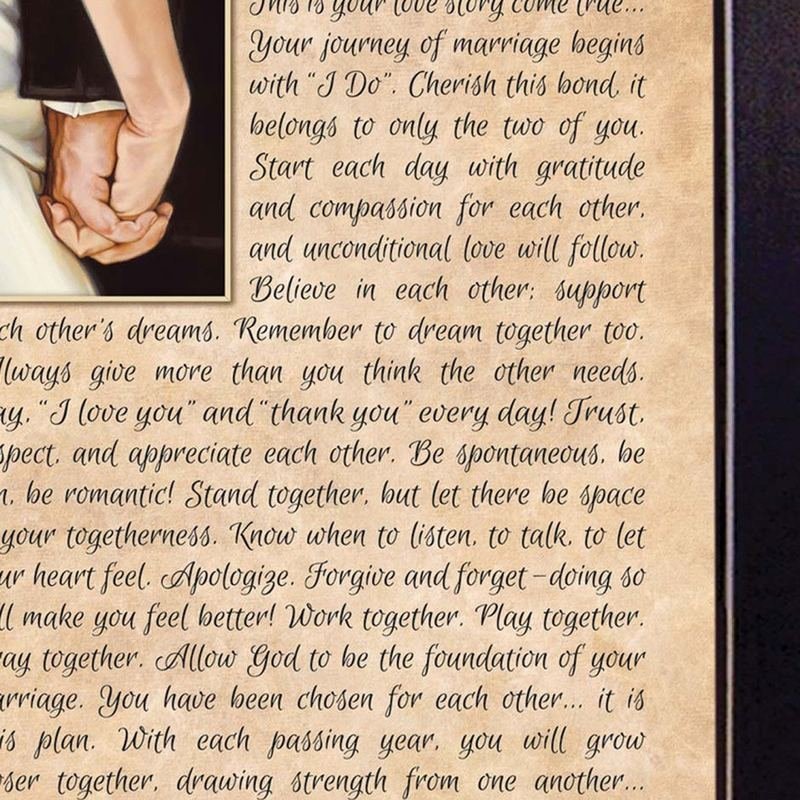 This is your love story come true...
Your journey of marriage begins
with “I Do”. Cherish this bond, it
belongs to only the two of you.
Start each day with gratitude
and compassion for each other,
and unconditional love will follow.
Believe in each other; support
ch other's dreams. Remember to dream together too.
lways give more than you think the other needs.
ay, “I love you” and “thank you” every day! Trust,
spect, and appreciate each other. Be spontaneous, be
n, be romantic! Stand together, but let there be space
your togetherness. Know when to listen, to talk, to let
ur heart feel. Apologize. Forgive and forget–doing so
ll make you feel better! Work together. Play together.
ray together. Allow God to be the foundation of your
arriage. You have been chosen for each other... it is
is plan. With each passing year, you will grow
oser together, drawing strength from one another...